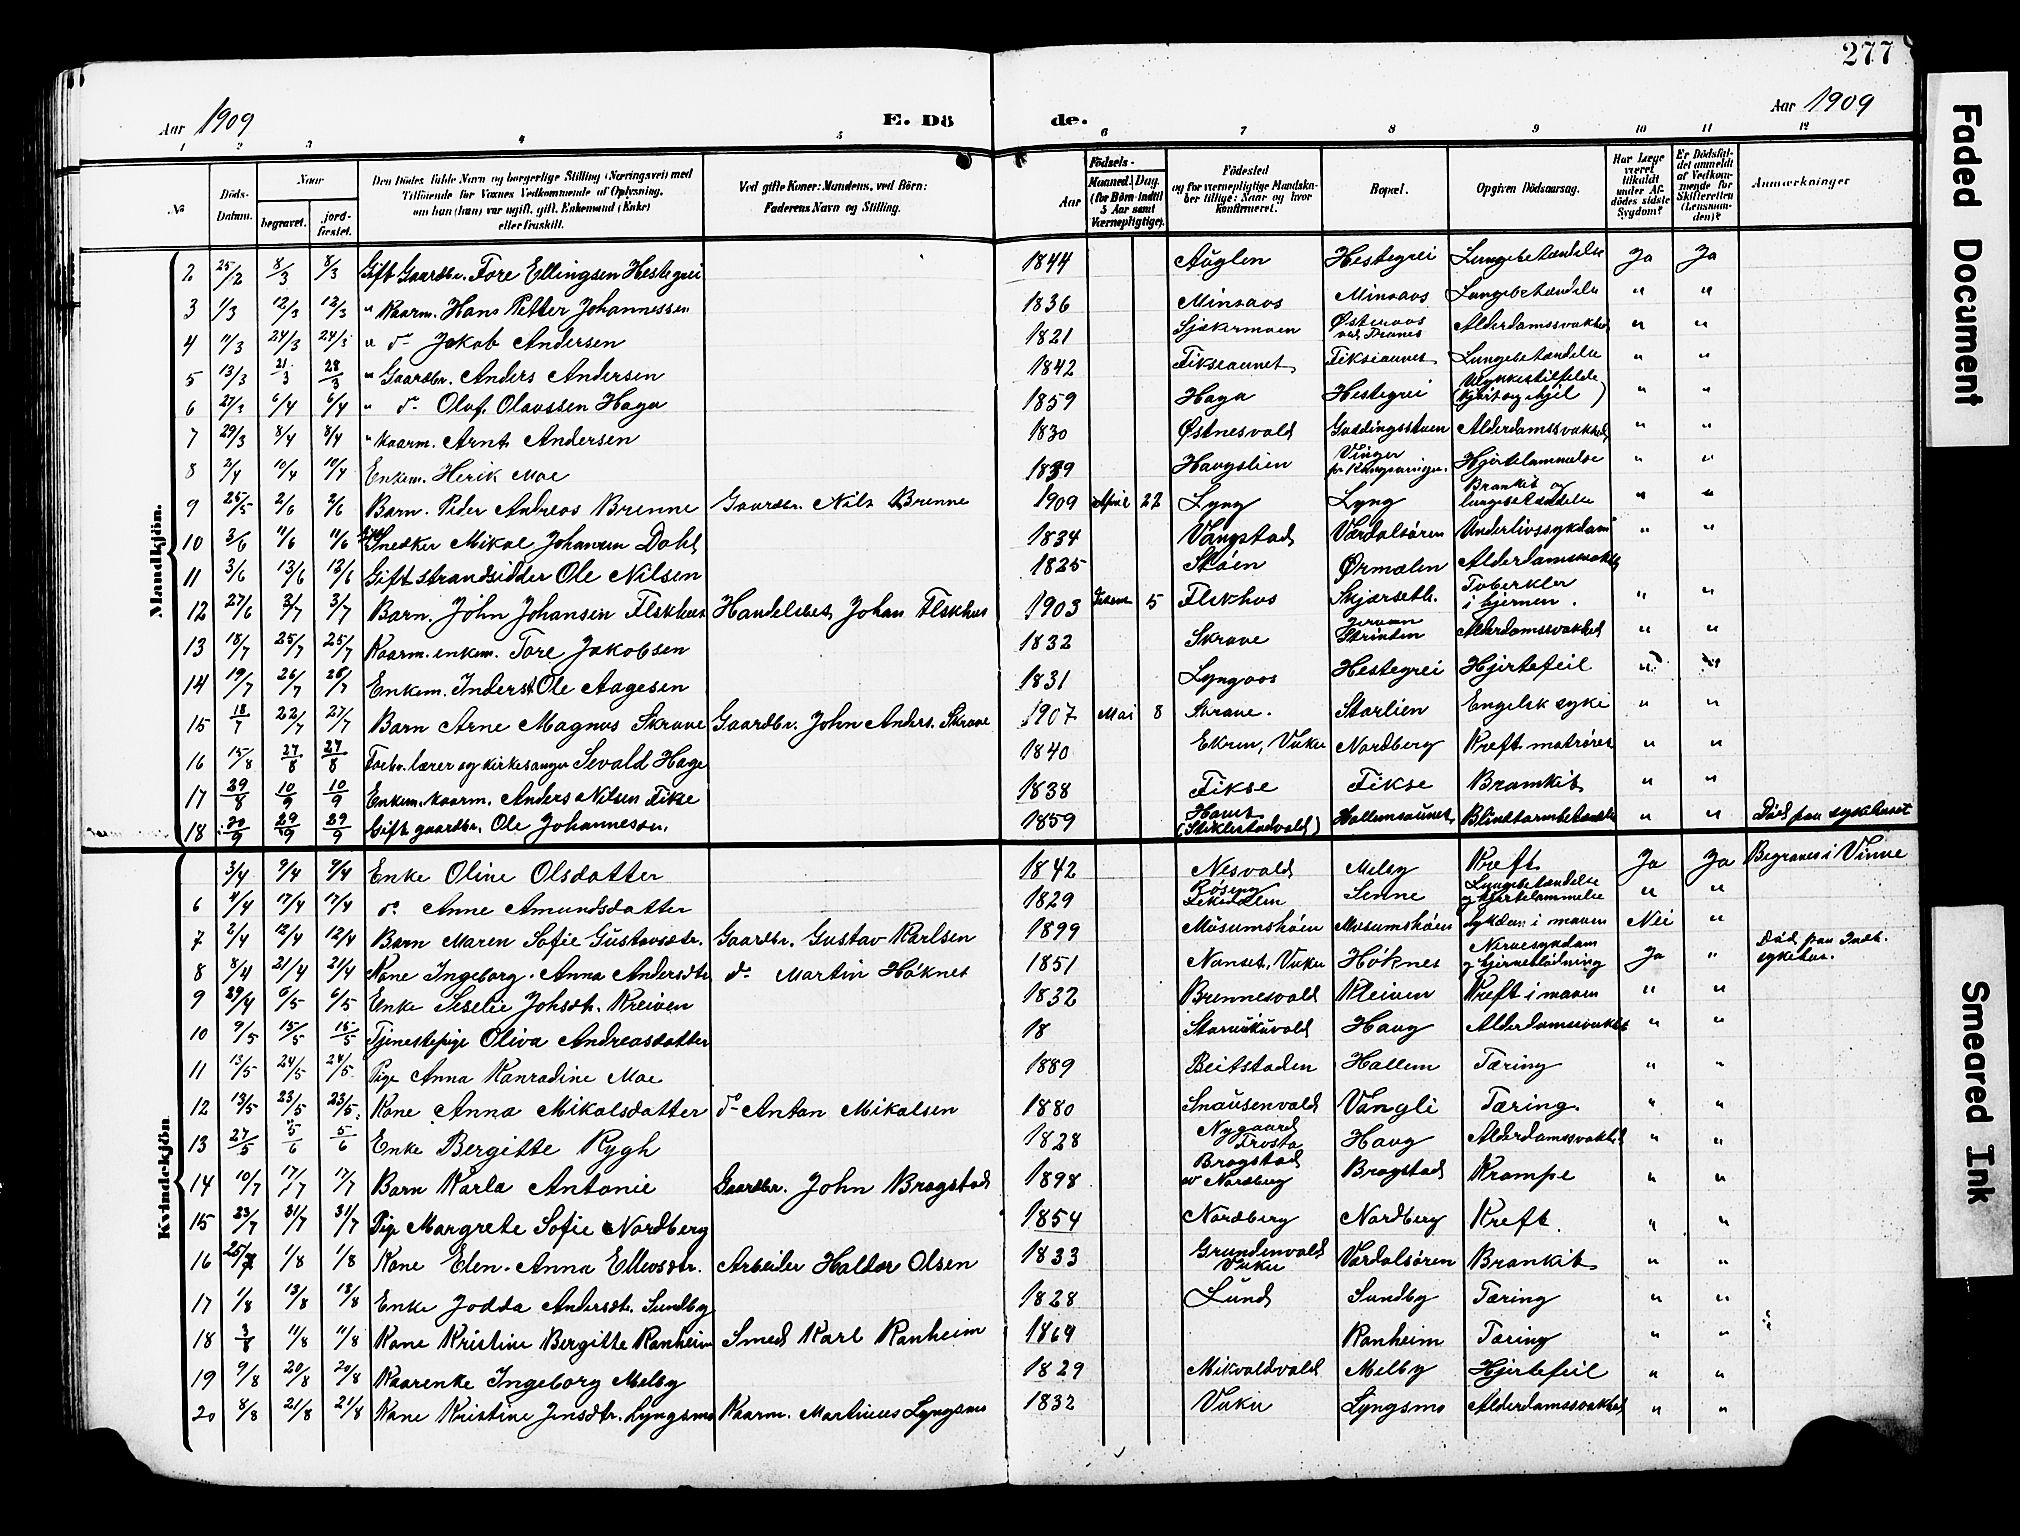 277
Aar 1909 E. Dö de. Aar 1909
1 2 3 4 5 6 7 8 9 10 11 12
No Döds-Datum. Naar begravet. jord-fæstet. Den Dödes fulde Navn og borgerlige Stilling (Næringsvei) med Tilföiende for Voxnes Vedkommende af Oplysning, om han (hun) var ugift, gift, Enkemand (Enke) eller fraskilt. Ved gifte Koner: Mandens, ved Börn: Faderens Navn og Stilling. Födsels- Aar Maaned. Dag. (for Börn indtil 5 Aar samt Værnepligtige). Födested og for værnepligtige Mandska-ber tillige: Naar og hvor Konfirmeret. Bopæl. Opgiven Dödsaarsag. Har Læge været tilkaldt under Af-dödes sidste Sygdom? Er Dödsfal-det anmeldt af Vedkom-mende for Skifteretten (Lensman-den)? Anmærkninger
Mandkjön.
2 25/2 8/3 8/3 Gift Gaardbr. Tore Ellingsen Hestegrei 1844 Auglen Hestegrei Lungebetændelse Ja Ja
3 1/3 12/3 12/3 " Kaarm. Hans Petter Johannessen 1836 Minsaas Minsaas Lungebetændelse " "
4 11/3 24/3 24/3 " do Jakob Andersen 1821 Sjækermoen Østeraas Alderdomssvakhed " "
5 13/3 21/3 28/3 " Gaardbr. Anders Andersen 1842 Fikseaunet Fikseaunet Lungebetændelse " "
6 27/3 6/4 6/4 " do Oluf Olaussen Haga 1859 Haga Hestegrei Ulykkestilfelde (kjørt og ihjel) " "
7 29/3 8/4 8/4 " Kaarm. Arnt Andersen 1830 Østnesvald Guddingsstuen Alderdomssvakhed " "
8 2/4 10/4 10/4 Enkem. Henrik Moe 1839 Haugslien Vinger pr Kongsvinger. Hjertelammelse " "
9 25/5 2/6 2/6 Barn. Peder Andreas Brenne Gaardbr. Nils Brenne 1909 April 22 Lyng Lyng Bronkit og lungebetændelse " "
10 3/6 11/6 11/6 Snedker Mikal Johansen Dahl 1834 Vangstad Værdalsøren Underlivssykdom " "
11 3/6 13/6 13/6 Gift strandsidder Ole Nilsen 1825 Støen Ørmelen Alderdomssvakhed
12 27/6 3/7 3/7 Barn. John Johansen Flskhus Handelsbet. Johan Flskhus 1903 5 Flskhus Skjærseth. Tuberkler i hjernen. " "
13 18/7 25/7 25/7 Kaarm. enkem. Tore Jakobsen 1832 Skrove Strinden Alderdomssvakhed " "
14 19/7 26/7 26/7 Enkem. Inderst Ole Aagesen 1831 Lyngaas Hestegrei Hjertefeil " "
15 18/7 22/7 27/7 Barn Arne Magnus Skrove Gaardbr. John Anders. Skrove 1907 Mai 8 Skrove. Storlien Engelsk syke " "
16 15/8 27/8 27/8 Forhv. lærer og kirkesanger Sevald Hage 1840 Ekren, Vuku Nordberg Kreft. matrøret " "
17 29/8 10/9 10/9 Enkem. kaarm. Anders Nilsen Fikse 1838 Fikse Fikse Bronkit " "
18 20/9 29/9 29/9 Gift gaardbr. Ole Johannessen. 1859 (Stiklestadvald) Hallemsaunet Blindtarmbetændelse " " Död paa sykehuset
Kvindekjön
3/4 9/4 9/4 Enke Oline Olsdatter 1842 Nesvald Melby Kreft Ja Ja Begraves i Vinne
6 4/4 17/4 17/4 do Anne Amundsdatter 1829 Røseng Senne Lungebetændelse og hjertelammelse " "
7 2/4 12/4 12/4 Barn Maren Sofie Gustavsdtr. Gaardbr. Gustav Karlsen 1899 Musumshøen Musumshøen sykdom i maven Nei "
8 8/4 21/4 21/4 Kone Ingeborg. Anna Andersdtr do Martin Høknes 1851 Nonset, Vuku Høknes Nervesykdom og hjerneblødning Ja " Död paa Indh. sykehus.
9 29/4 6/5 6/5 Enke Seselie Johsdtr. Kleiven 1832 Brennesvald Kleiven Kreft i maven " "
10 9/5 15/5 15/5 Tjenestepige Oliva Andreasdatter 18 Haug Alderdomssvakhet " "
11 13/5 24/5 24/5 Pige Anna Konradine Moe 1889 Beitstaden Hallem Tæring " "
12 13/5 23/5 23/5 Kone Anna Mikalsdatter do Anton Mikalsen 1880 Snausenvald Vangli Tæring. " "
13 27/5 5/6 5/6 Enke Bergitte Rygh 1828 Nygaard Frosta Haug Alderdomssvakhet " "
14 10/7 17/7 17/7 Barn Karla Antonie Gaardbr. John Bragstad 1898 Bragstad av Nordberg Bragstad Krampe " "
15 23/7 31/7 31/7 Pige Margrete Sofie Nordberg 1854 Nordberg Nordberg Kreft. " "
16 25/7 1/8 1/8 Kone Elen. Anna Ellevsdtr. Arbeider Haldor Olsen 1833 Grundenvald Vuku Værdalsøren Bronkit " "
17 1/8 13/8 13/8 Enke Jodda Andersdtr. Sundby 1828 Lund Sundby Tæring " "
18 3/8 11/8 11/8 Kone Kristine Bergitte Ranheim Smed Karl Ranheim 1869 Ranheim Tæring " "
19 9/8 20/8 20/8 Kaarenke Ingeborg Melby 1829 Mikvoldvald Melby Hjertefeil " "
20 8/8 21/8 21/8 Kone Kristine Jensdtr. Lyngsmo Kaarm. Martinus Lyngsmo 1832 Vuku Lyngsmo Alderdomssvakhet " "
Faded Document
Smeared Ink